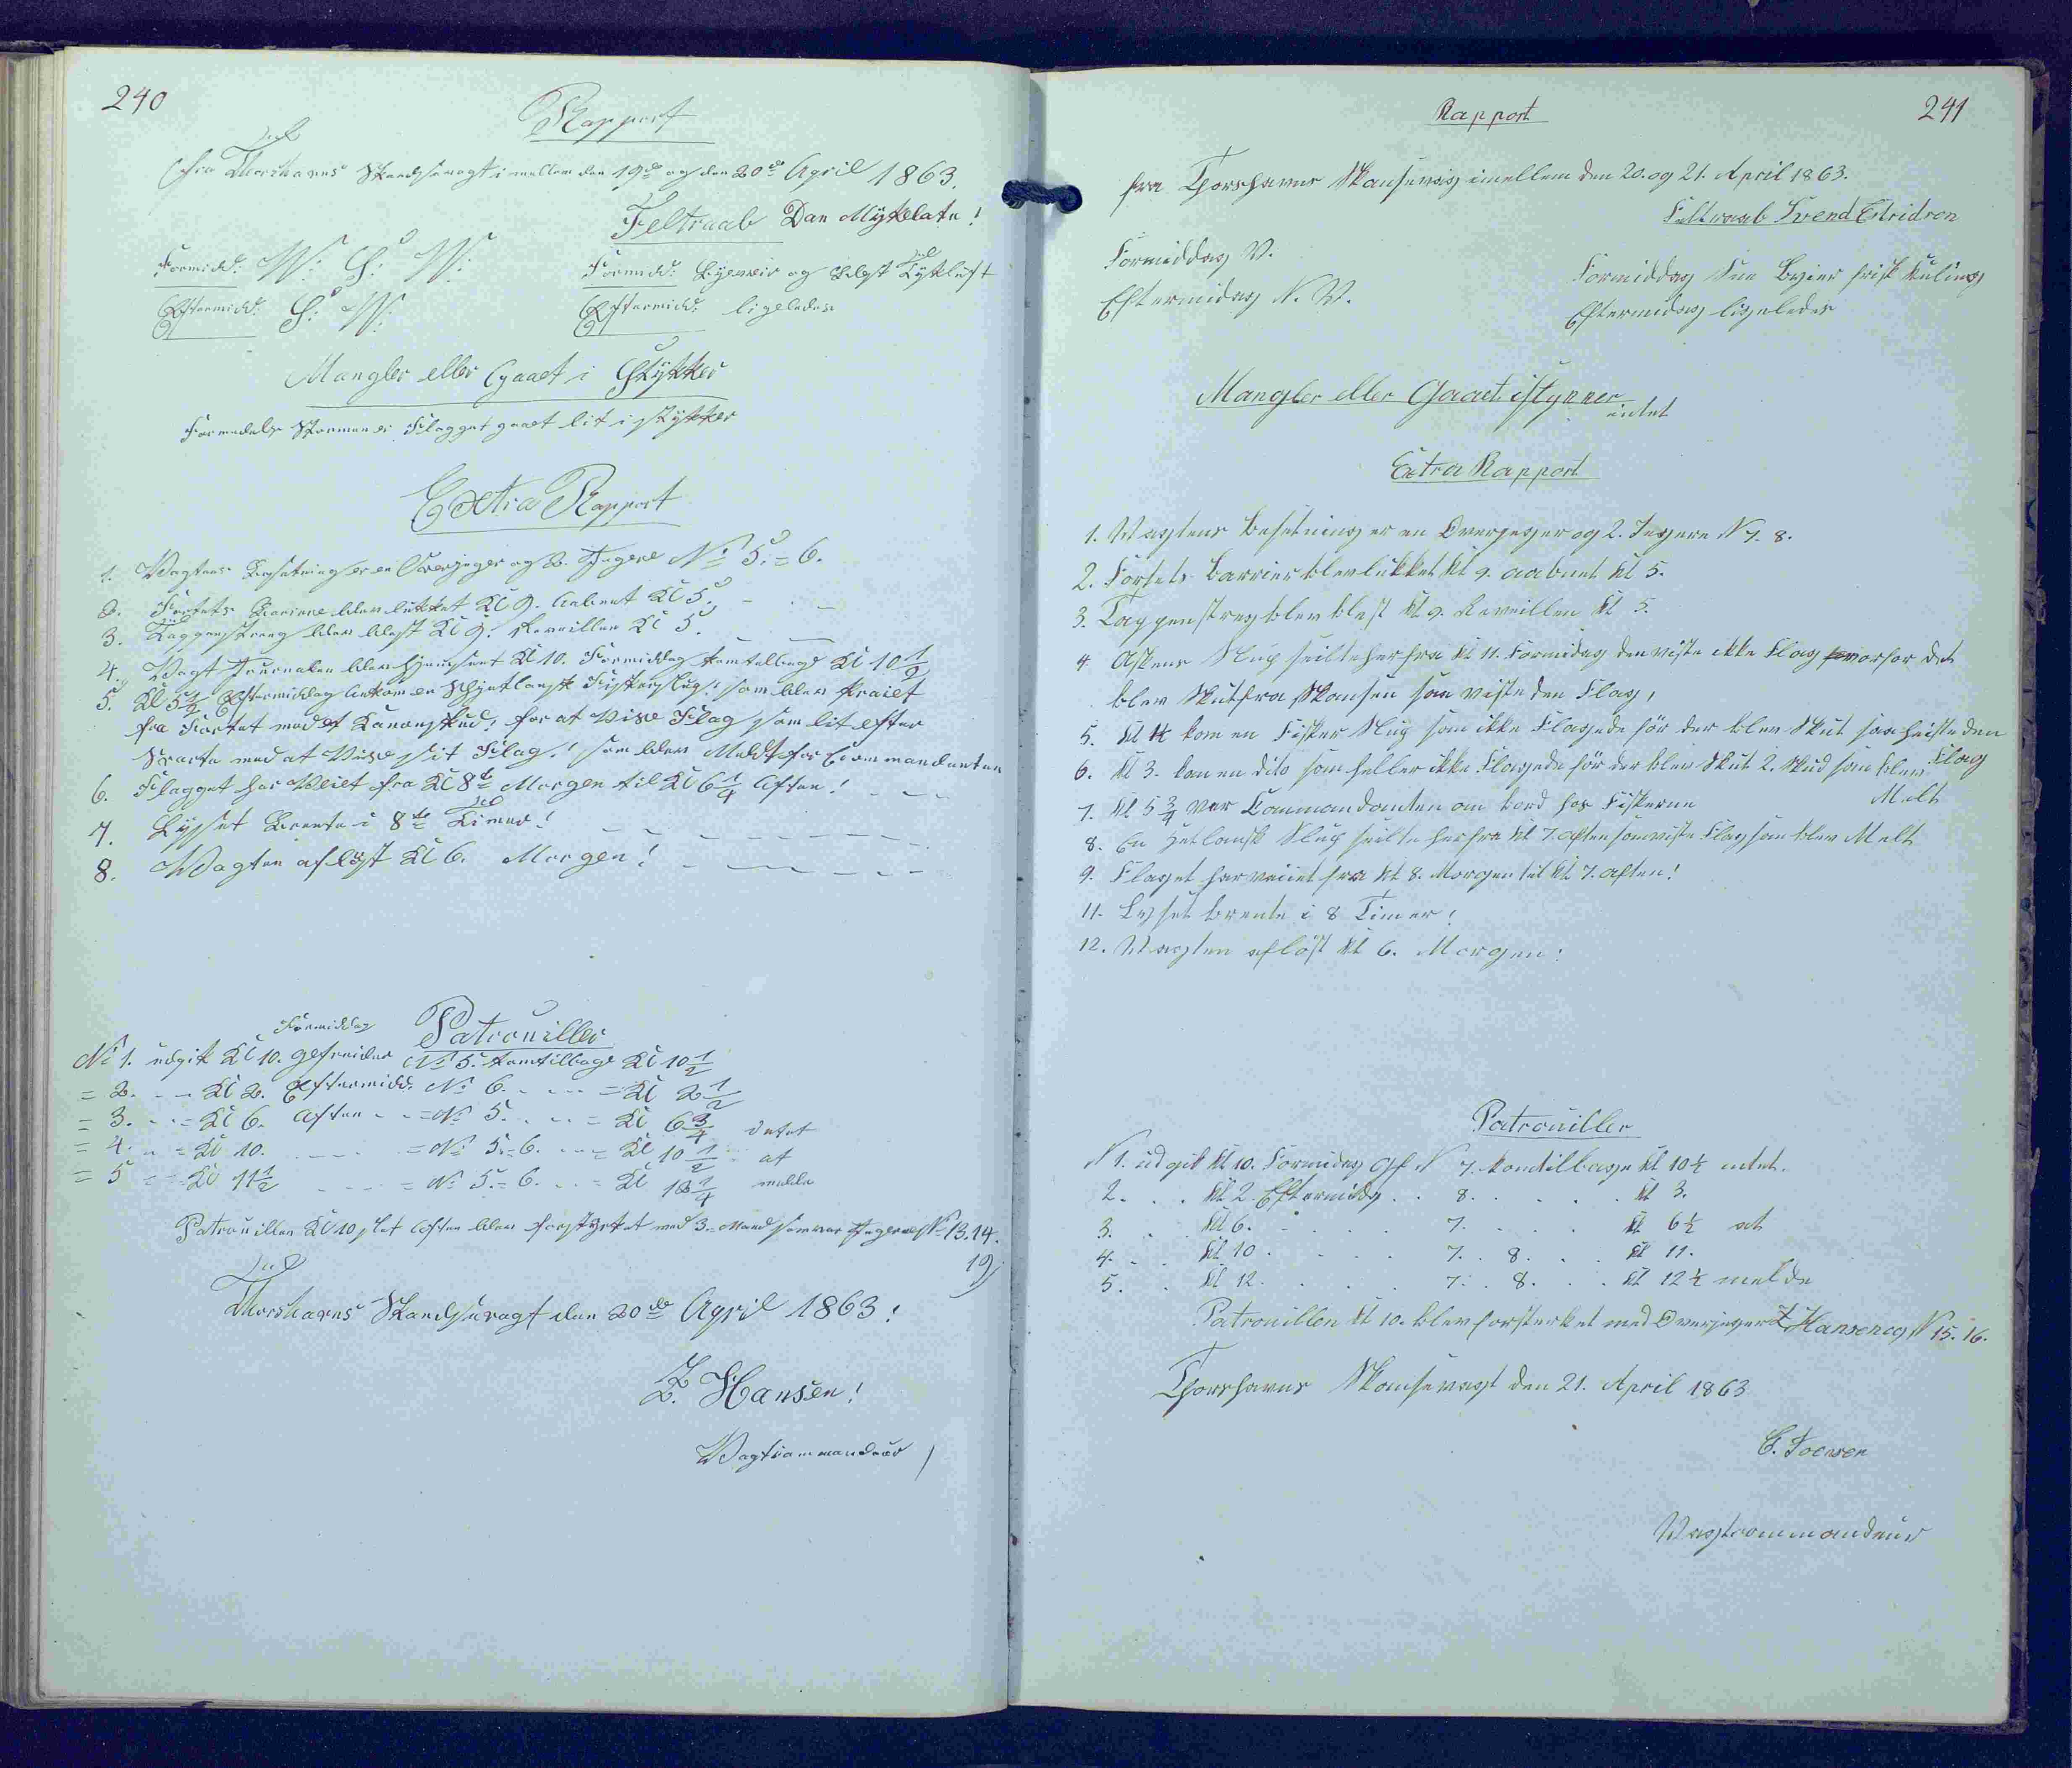 240
Rapport
fra Thorshavns Skandsevagt i mellem den 19de og den 20de April 1863.
Feltraab Dan Mykelate!
Formidd: W: S: W: Formidd: Byeveir og Tykluft
Eftermidd: S: W: Eftermidd: ligeledes
Mangler eller Gaaet i Stykker
Formedelst Stormen er Flagget gaaet lit i stykker
Extra Rapport
1. Vagtens Besetning er en Overjeger og 2. Jegere No 5. = 6.
2. Fortets Bariere blev lukket Kl 9. Aabent Kl 5.
3. Tappenstreg blev blest Kl 9. Reveillen Kl 5.
4. Vagt Journalen blev Kl 10. Formiddag kom tilbage Kl 10 1/2
5. Kl 5 1/2 Eftermiddag Ankom en Schjetlansk Fiskerslup! som blev Praiet
fra Fortet med et Kanonskud! for at Vise Flag som lit efter
Svarte med at Vise sit Flag! som blev Meldt for Commandanten
6. Flagget har Veiet fra Kl 8te Morgen til Kl 6 1/4 Aften!
7. Lysset Brente i 8te Timer!
8. Vagten aflöst Kl 6. Morgen!
Formiddag Patrouiller
No 1. udgik Kl 10. gefreider No 5. kom tilbage Kl 10 1/2
= 2. - - Kl 2. Eftermidd. No 6. - - = Kl 2 1/2
= 3. - - = Kl 6. Aften - - = No 5. - - = Kl 6 3/4 Intet
= 4. - = Kl 10. - - = No 5. = 6. - - = Kl 10 1/2 at
= 5 = = Kl 11 1/2 - - = No 5. = 6. - - = Kl 1/4 melde
Patrouillen Kl 10 slet Aften blev forstyrket med 3= Mand som var Jegerne No 13. 14.
19
Thorshavns Skandsevagt den 20de April 1863!
Z. Hansen!
Vagtcommandeur
Rapport
241
fra Thorshavns Skansevagt imellem den 20. og 21. April 1863.
Feltraab Svend Estridsen
Formiddag V. Formiddag Sne Byier frisk Kuling
Eftermidag N. W. Eftermidag ligeledes
Mangler eller Gaaet i stynner
intet
Extra Rapport
1. Wagtens besetning er en Overjeger og 2. Jegere N 7. 8.
2. Fortets barrier blev lukket Kl 9. aabnet Kl 5.
3. Tappenstreg blev blest Kl 9. Reveillen Kl 5.
4. Slup seilte herfra Kl 11. Formidag den viste ikke Flag hvorfor det
blev Skut fra Skansen saa viste den Flag,
5. Kl kom en Fisker Slup som ikke Flagede för der blev Skut saa heiste den
Flag
6. Kl 3. kom en dito som heller ikke Flagede för der blev Skut 2. Skud som blev
Melt
7. Kl 5 3/4 var Commandanten om bord hos Fiskerne
8. En Hetlansk Slup seilte herfra Kl 7. aften som viste Flag som blev Melt
9. Flaget har veiiet fra Kl 8. Morgen til Kl 7. aften!
11. Lyset brente i 8 Timer!
12. Wagten aflöst Kl 6. Morgen:
Patrouiller
N 1. udgik Kl 10. Formidag Gf. N 7. kom tilbage Kl 10 1/2 intet.
2. . . Kl 2. Eftermidag . . 8. . . . . Kl 3.
3. . . Kl 6. . . . . 7. . . . . Kl 6 1/2 at
4. . . Kl 10. . . . . 7. . 8. . . Kl 11.
5. . Kl 12. . . . . 7. . 8. . . Kl 12 1/2 melde
Patrouillen Kl 10. blev forsterket med Overjeger Z Hansen og N 15. 16.
Thorshavns Skansevagt den 21. April 1863
Wagtcommandeur